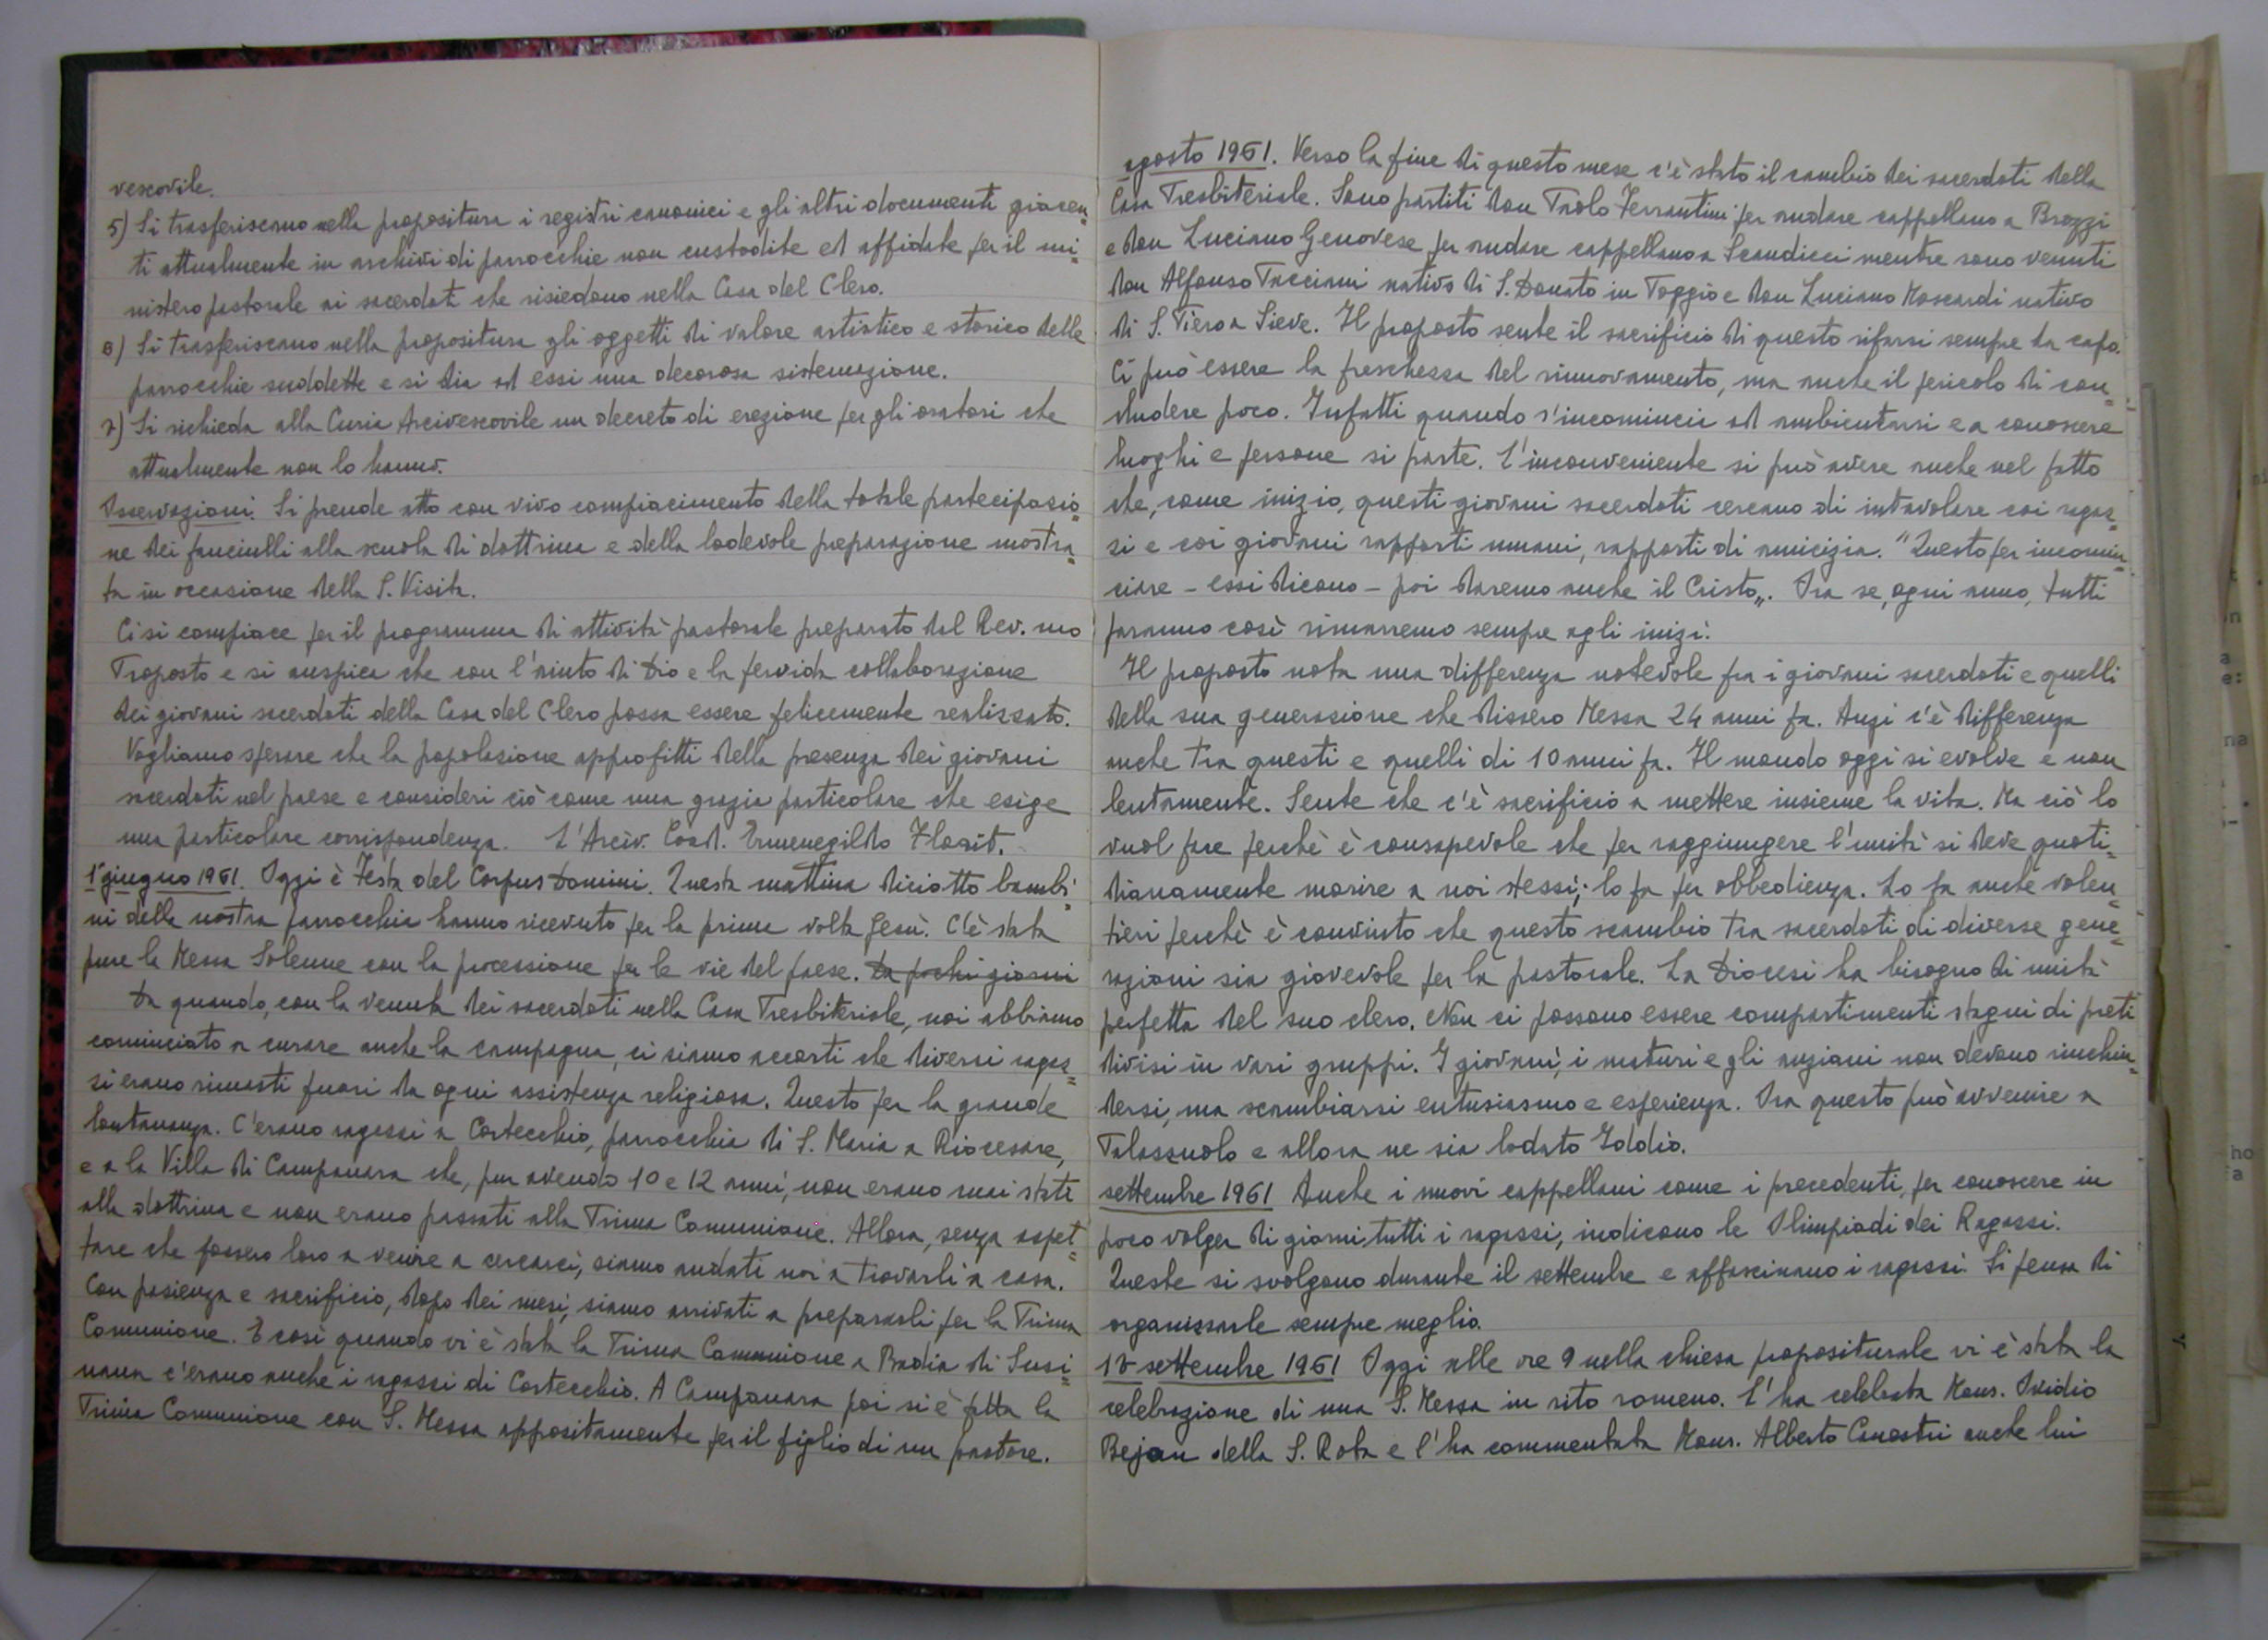 vescovile.
5) Si trasferiscano nella propositura i registri canonici e gli altri documenti giacen=
ti attualmente in archivi di parrocchie non custodite ed affidate per il mi=
nistero pastorale ai sacerdoti che risiedono nella Casa del Clero.
6) Si trasferiscano nella propositura gli oggetti di valore artistico e storico delle
parrocchie suddette e si dia ad essi una decorosa sistemazione.
7) Si richieda alla Curia Arcivescovile un decreto di erezione per gli oratori che
attualmente non lo hanno.
Osservazioni. Si prende atto con vivo compiacimento della totale partecipazio=
ne dei fanciulli alla scuola di dottrina e della lodevole preparazione mostra=
ta in occasione della S. Visita.
Ci si compiace per il programma di attività pastorale preparato dal Rev. mo
Proposto e si auspica che con l'aiuto di Dio e la fervida collaborazione
dei giovani sacerdoti della Casa del Clero possa essere felicemente realizzato.
Vogliamo sperare che la popolazione approfitti della presenza dei giovani
sacerdoti nel paese e consideri ciò come una grazia particolare che esige
una particolare corrispondenza. L'Arciv. Coad. Ermenegildo Florit.
1° giugno 1961. Oggi è Festa del Corpus Domini. Questa mattina diciotto bambi=
ni della nostra parrocchia hanno ricevuto per la prima volta Gesù. C'è stata
pure la Messa Solenne con la processione per le vie del paese. Da pochi giorni
Da quando, con la venuta dei sacerdoti nella Casa Presbiteriale, noi abbiamo
cominciato a curare anche la campagna, ci siamo accorti che diversi ragaz=
zi erano rimasti fuori da ogni assistenza religiosa. Questo per la grande
lontananza. C'erano ragazzi a Cortecchio, parrocchia di S. Maria a Riocesare,
e a la Villa di Campanara che, pur avendo 10 e 12 anni, non erano mai stati
alla dottrina e non erano passati alla Prima Comunione. Allora, senza aspet=
tare che fossero loro a venire a cercarci, siamo andati noi a trovarli a casa.
Con pazienza e sacrificio, dopo dei mesi, siamo arrivati a prepararli per la Prima
Comunione. E così quando vi è stata la Prima Comunione a Badia di Susi=
nana c'erano anche i ragazzi di Cortecchio. A Campanara poi si è fatta la
Prima Comunione con S. Messa appositamente per il figlio di un pastore.
agosto 1961. Verso la fine di questo mese c'è stato il cambio dei sacerdoti della
Casa Presbiteriale. Sono partiti don Paolo Ferrantini per andare cappellano a Brozzi
e don Luciano Genovese per andare cappellano a Scandicci mentre sono venuti
don Alfonso Pacciani nativo di S. Donato in Poggio e don Luciano Moscardi nativo
di S. Piero a Sieve. Il proposto sente il sacrificio di questo rifarsi sempre da capo.
Ci può essere la freschezza del rinnovamento, ma anche il pericolo di con=
cludere poco. Infatti quando s'incomincia ad ambientarsi e a conoscere
luoghi e persone si parte. L'inconveniente si può avere anche nel fatto
che, come inizio, questi giovani sacerdoti cercano di intavolare coi ragaz=
zi e coi giovani rapporti umani, rapporti di amicizia. "Questo per incomin=
ciare - essi dicono - poi daremo anche il Cristo„. Ora se, ogni anno, tutti
faranno così rimarremo sempre agli inizi.
Il proposto nota una differenza notevole fra i giovani sacerdoti e quelli
della sua generazione che dissero Messa 24 anni fa. Anzi c'è differenza
anche tra questi e quelli di 10 anni fa. Il mondo oggi si evolve e non
lentamente. Sente che c'è sacrificio a mettere insieme la vita. Ma ciò lo
vuol fare perchè è consapevole che per raggiungere l'unità si deve quoti=
dianamente morire a noi stessi; lo fa per obbedienza. Lo fa anche volen=
tieri perchè è convinto che questo scambio tra sacerdoti di diverse gene=
razioni sia giovevole per la pastorale. La Diocesi ha bisogno di unità
perfetta del suo clero. Non ci possono essere compartimenti stagni di preti
divisi in vari gruppi. I giovani, i maturi e gli anziani non devono rinchiu=
dersi, ma scambiarsi entusiasmo e esperienza. Ora questo può avvenire a
Palazzuolo e allora ne sia lodato Iddio.
settembre 1961 Anche i nuovi cappellani come i precedenti, per conoscere in
poco volger di giorni tutti i ragazzi, indicono le Olimpiadi dei Ragazzi.
Queste si svolgono durante il settembre e affascinano i ragazzi. Si pensa di
organizzarle sempre meglio.
settembre 1961 Oggi alle ore 9 nella chiesa propositurale vi è stata la
celebrazione di una S. Messa in rito romeno. L'ha celebrata Mons. Ovidio
Bejan della S. Rota e l'ha commentata Mons. Alberto Canestri anche lui